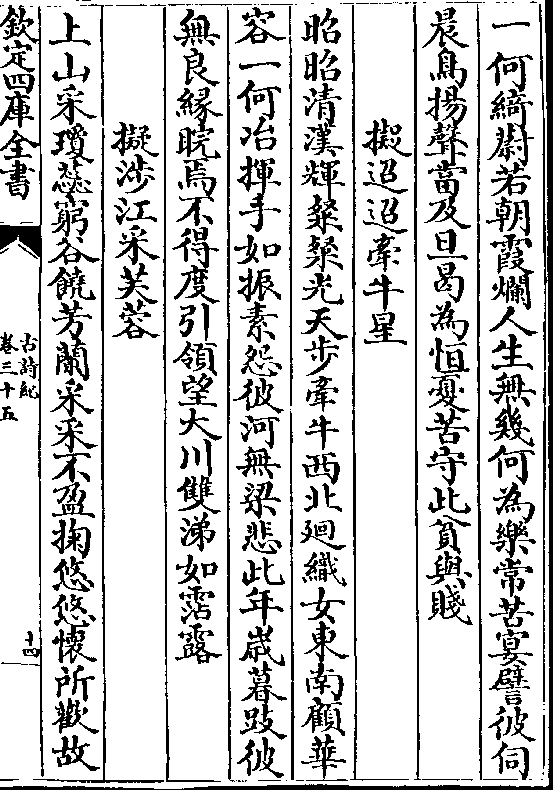 一何綺蔚若朝霞爛人生無幾何為樂常苦宴譬彼伺
晨鳥揚聲當及旦曷為恒憂苦守此貧與賤
擬迢迢牽牛星
昭昭清漢輝粲粲光天步牽牛西北廻織女東南顧華
容一何冶揮手如振素怨彼河無梁悲此年歲暮跂彼
無良緣睆焉不得度引領望大川雙涕如霑露
擬涉江采芙蓉
上山采瓊蕊窮谷饒芳蘭采采不盈掬悠悠懷所歡故
欽定四庫全書
古詩紀
卷三十五
十四